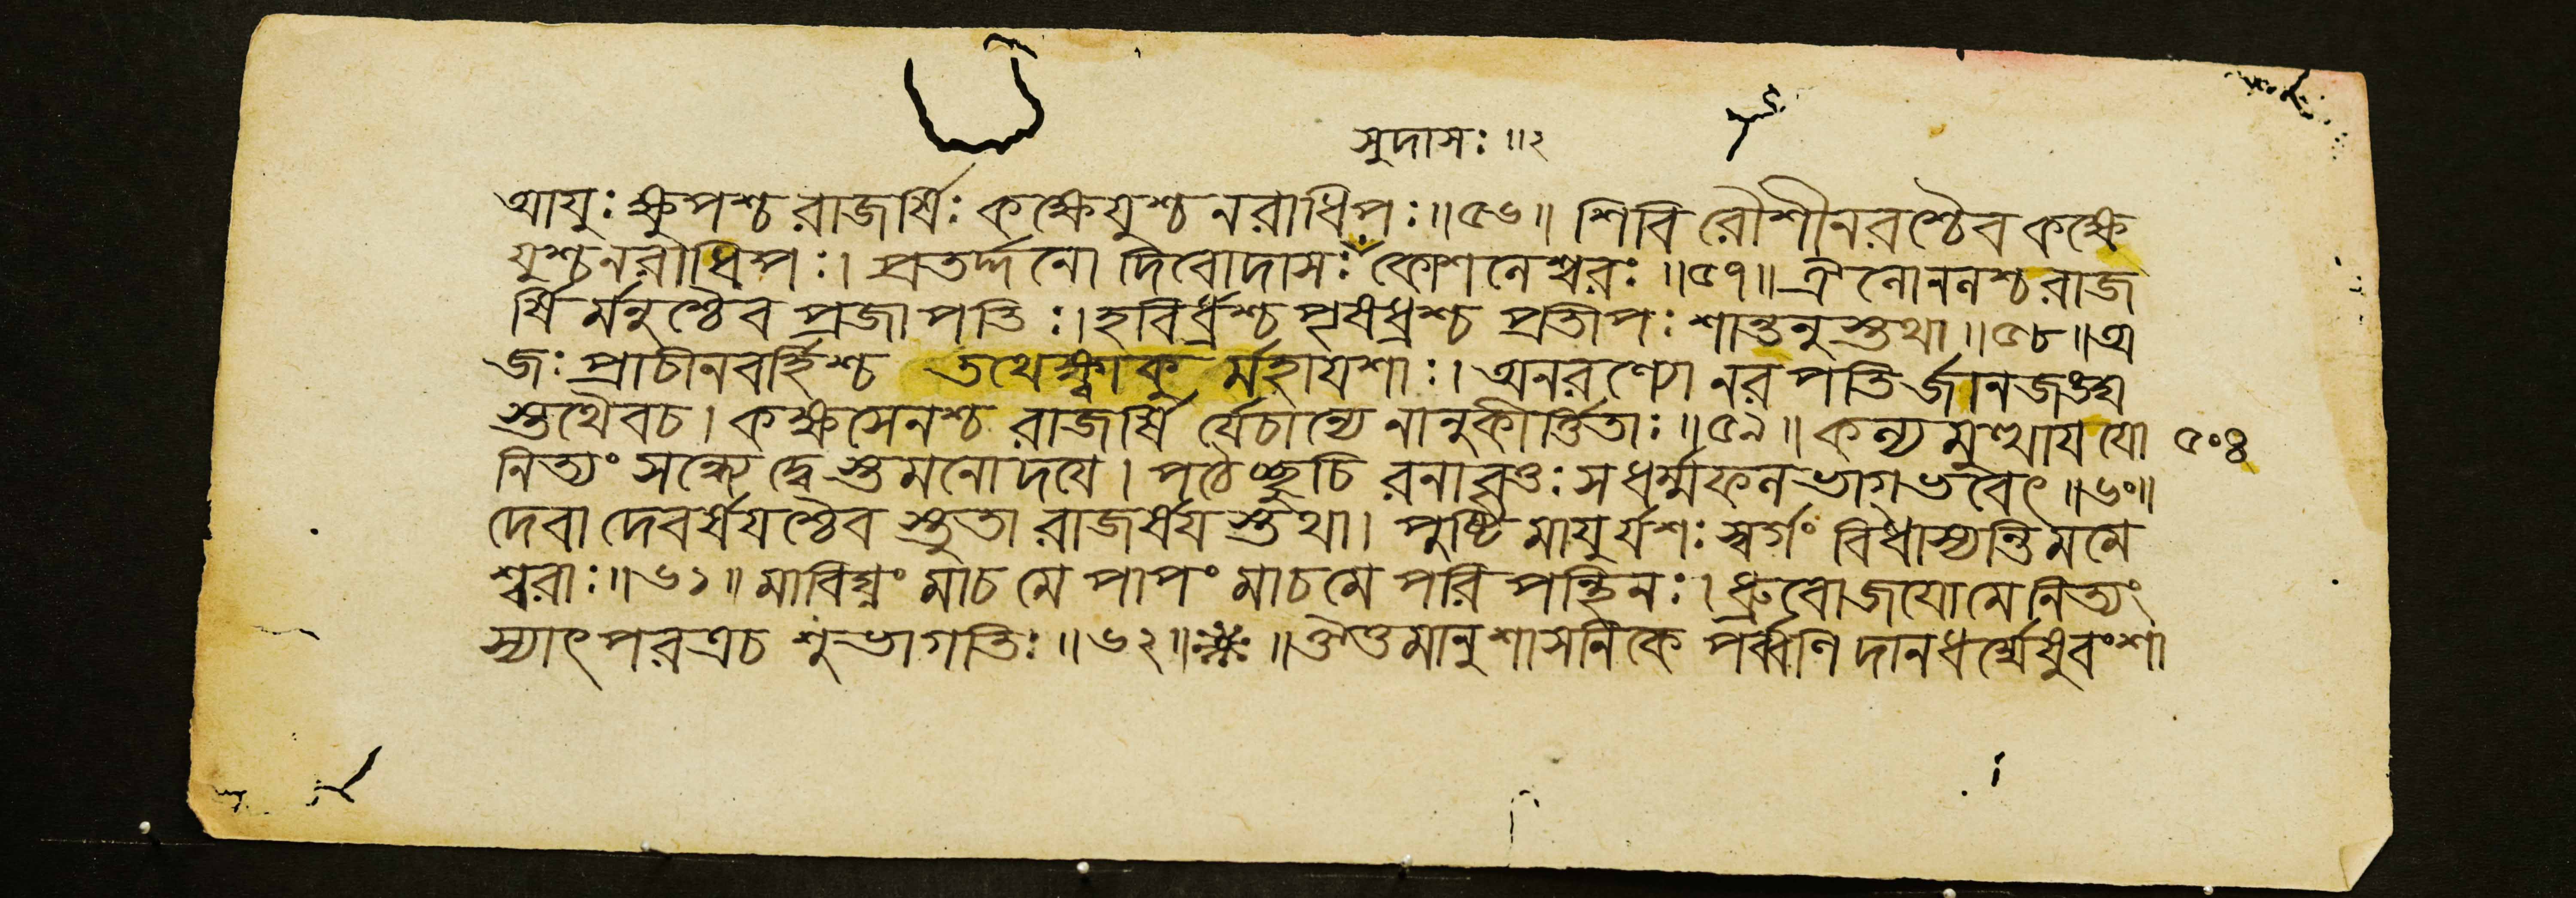 সুদাসঃ ॥২
আযুঃ ক্ষুপশ্চ রাজর্ষিঃ কক্ষেযুশ্চ নরাধিপঃ ॥৫৬॥ শিবি রৌশীনরশ্চৈব কক্ষে
যুশ্চনরাধিপঃ। প্রতর্দ্দনো দিবোদাসঃ কোশলেশ্বরঃ ॥৫৭॥ ঐলোনলশ্চ রাজ
র্ষি র্মনুশ্চৈব প্রজাপতিঃ। হবির্ধ্রশ্চ পৃষধ্রশ্চ প্রতীপঃ শান্তনুস্তথা ॥৫৮॥ অ
জঃ প্রাচীনবর্হিশ্চ তথেক্ষ্বাকু র্মহাযশাঃ। অনরণ্যো নরপতি র্জানজঙ্ঘ
স্তথৈবচ। কক্ষসেনশ্চ রাজর্ষি র্যেচান্যে নানুকীর্ত্তিতাঃ ॥৫৯॥ কল্য মুত্থায যো ৫০৪
নিত্যং সন্ধ্যে দ্বে স্তমনোদযে। পঠেচ্ছুচি রনাবৃতঃ স ধর্ম্মফলভাগ্ভবেৎ ॥৬০॥
দেবা দেবর্ষযশ্চৈব স্তুতা রাজর্ষয স্তথা। পুষ্টি মাযুর্যশঃ স্বর্গং বিধাস্যন্তি মমে
শ্বরাঃ ॥৬১॥ মাবিঘ্নং মাচ মে পাপং মাচমে পরিপন্থিনঃ। ধ্রুবোজযোমে নিত্যং
স্যাৎ পরত্রচ শুভাগতিঃ ॥৬২॥ ॥ ঐত্তমানুশাসনিকে পর্ব্বণি দানধর্ম্মেষুবংশা